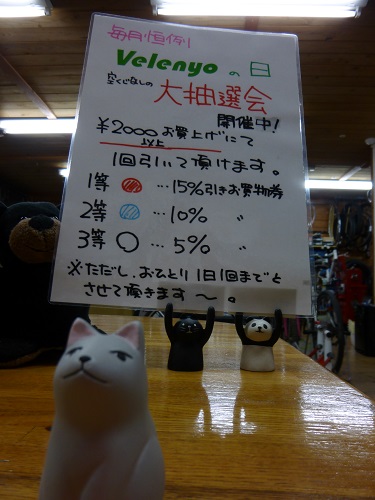 毎月恒例
Velenyo の 日
空くじなしの 大抽選会
開催中!
¥2000 お買上げにて
以上
1回引いて頂けます。
1等 … 15%引きお買物券
2等 … 10% 〃
3等 … 5% 〃
※ただし、おひとり1日1回までと
させて頂きます〜。